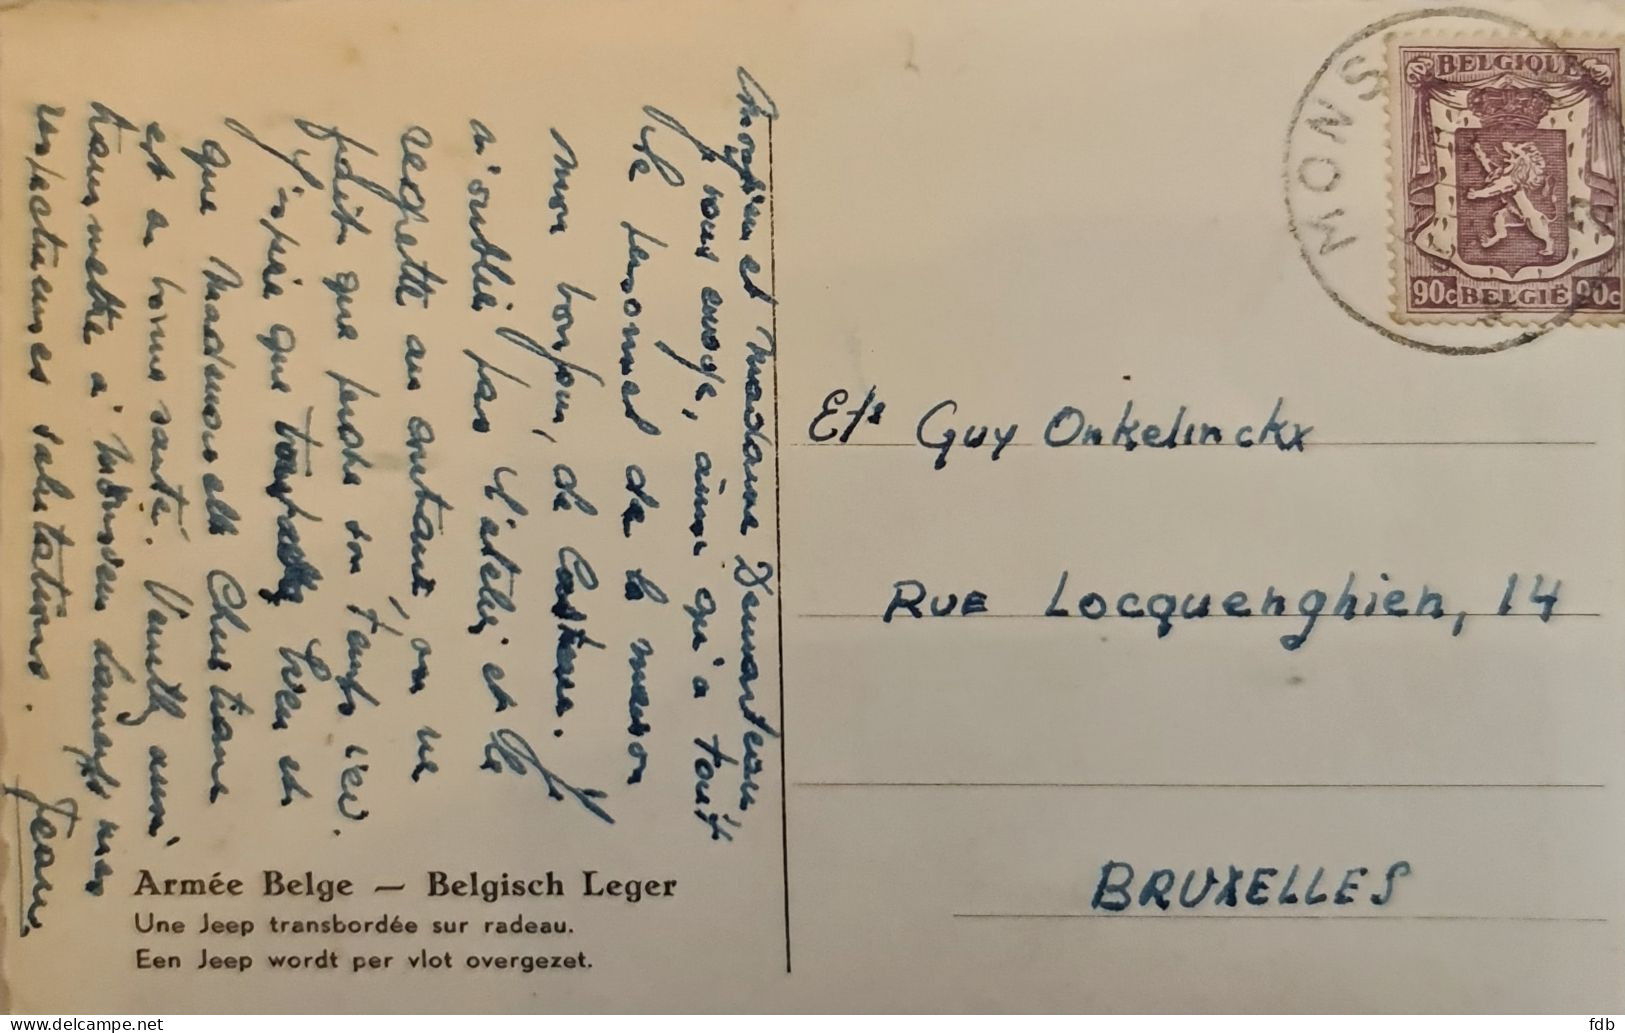 Monsieur et Madame Demanteau,
Je vous envoye, ainsi qu'a tout
le personnel de la maison
mon bonjour, de Casteau. Je
n'oublie pas l'atelier et le
regrette au contraire, on ne
fait que perdre son temps ici.
J'espère que tout va bien et
que Mademoiselle Christiane
est en bonne santé. Veuillez aussi
transmettre à Monsieur mes
respectueuses salutations.
Jean.
Armée Belge — Belgisch Leger
Une Jeep transbordée sur radeau.
Een Jeep wordt per vlot overgezet.
MONS
BELGIQUE
90c BELGIË 90c
Ets Guy Onkelinckx
Rue Locquenghien, 14
BRUXELLES
fdb